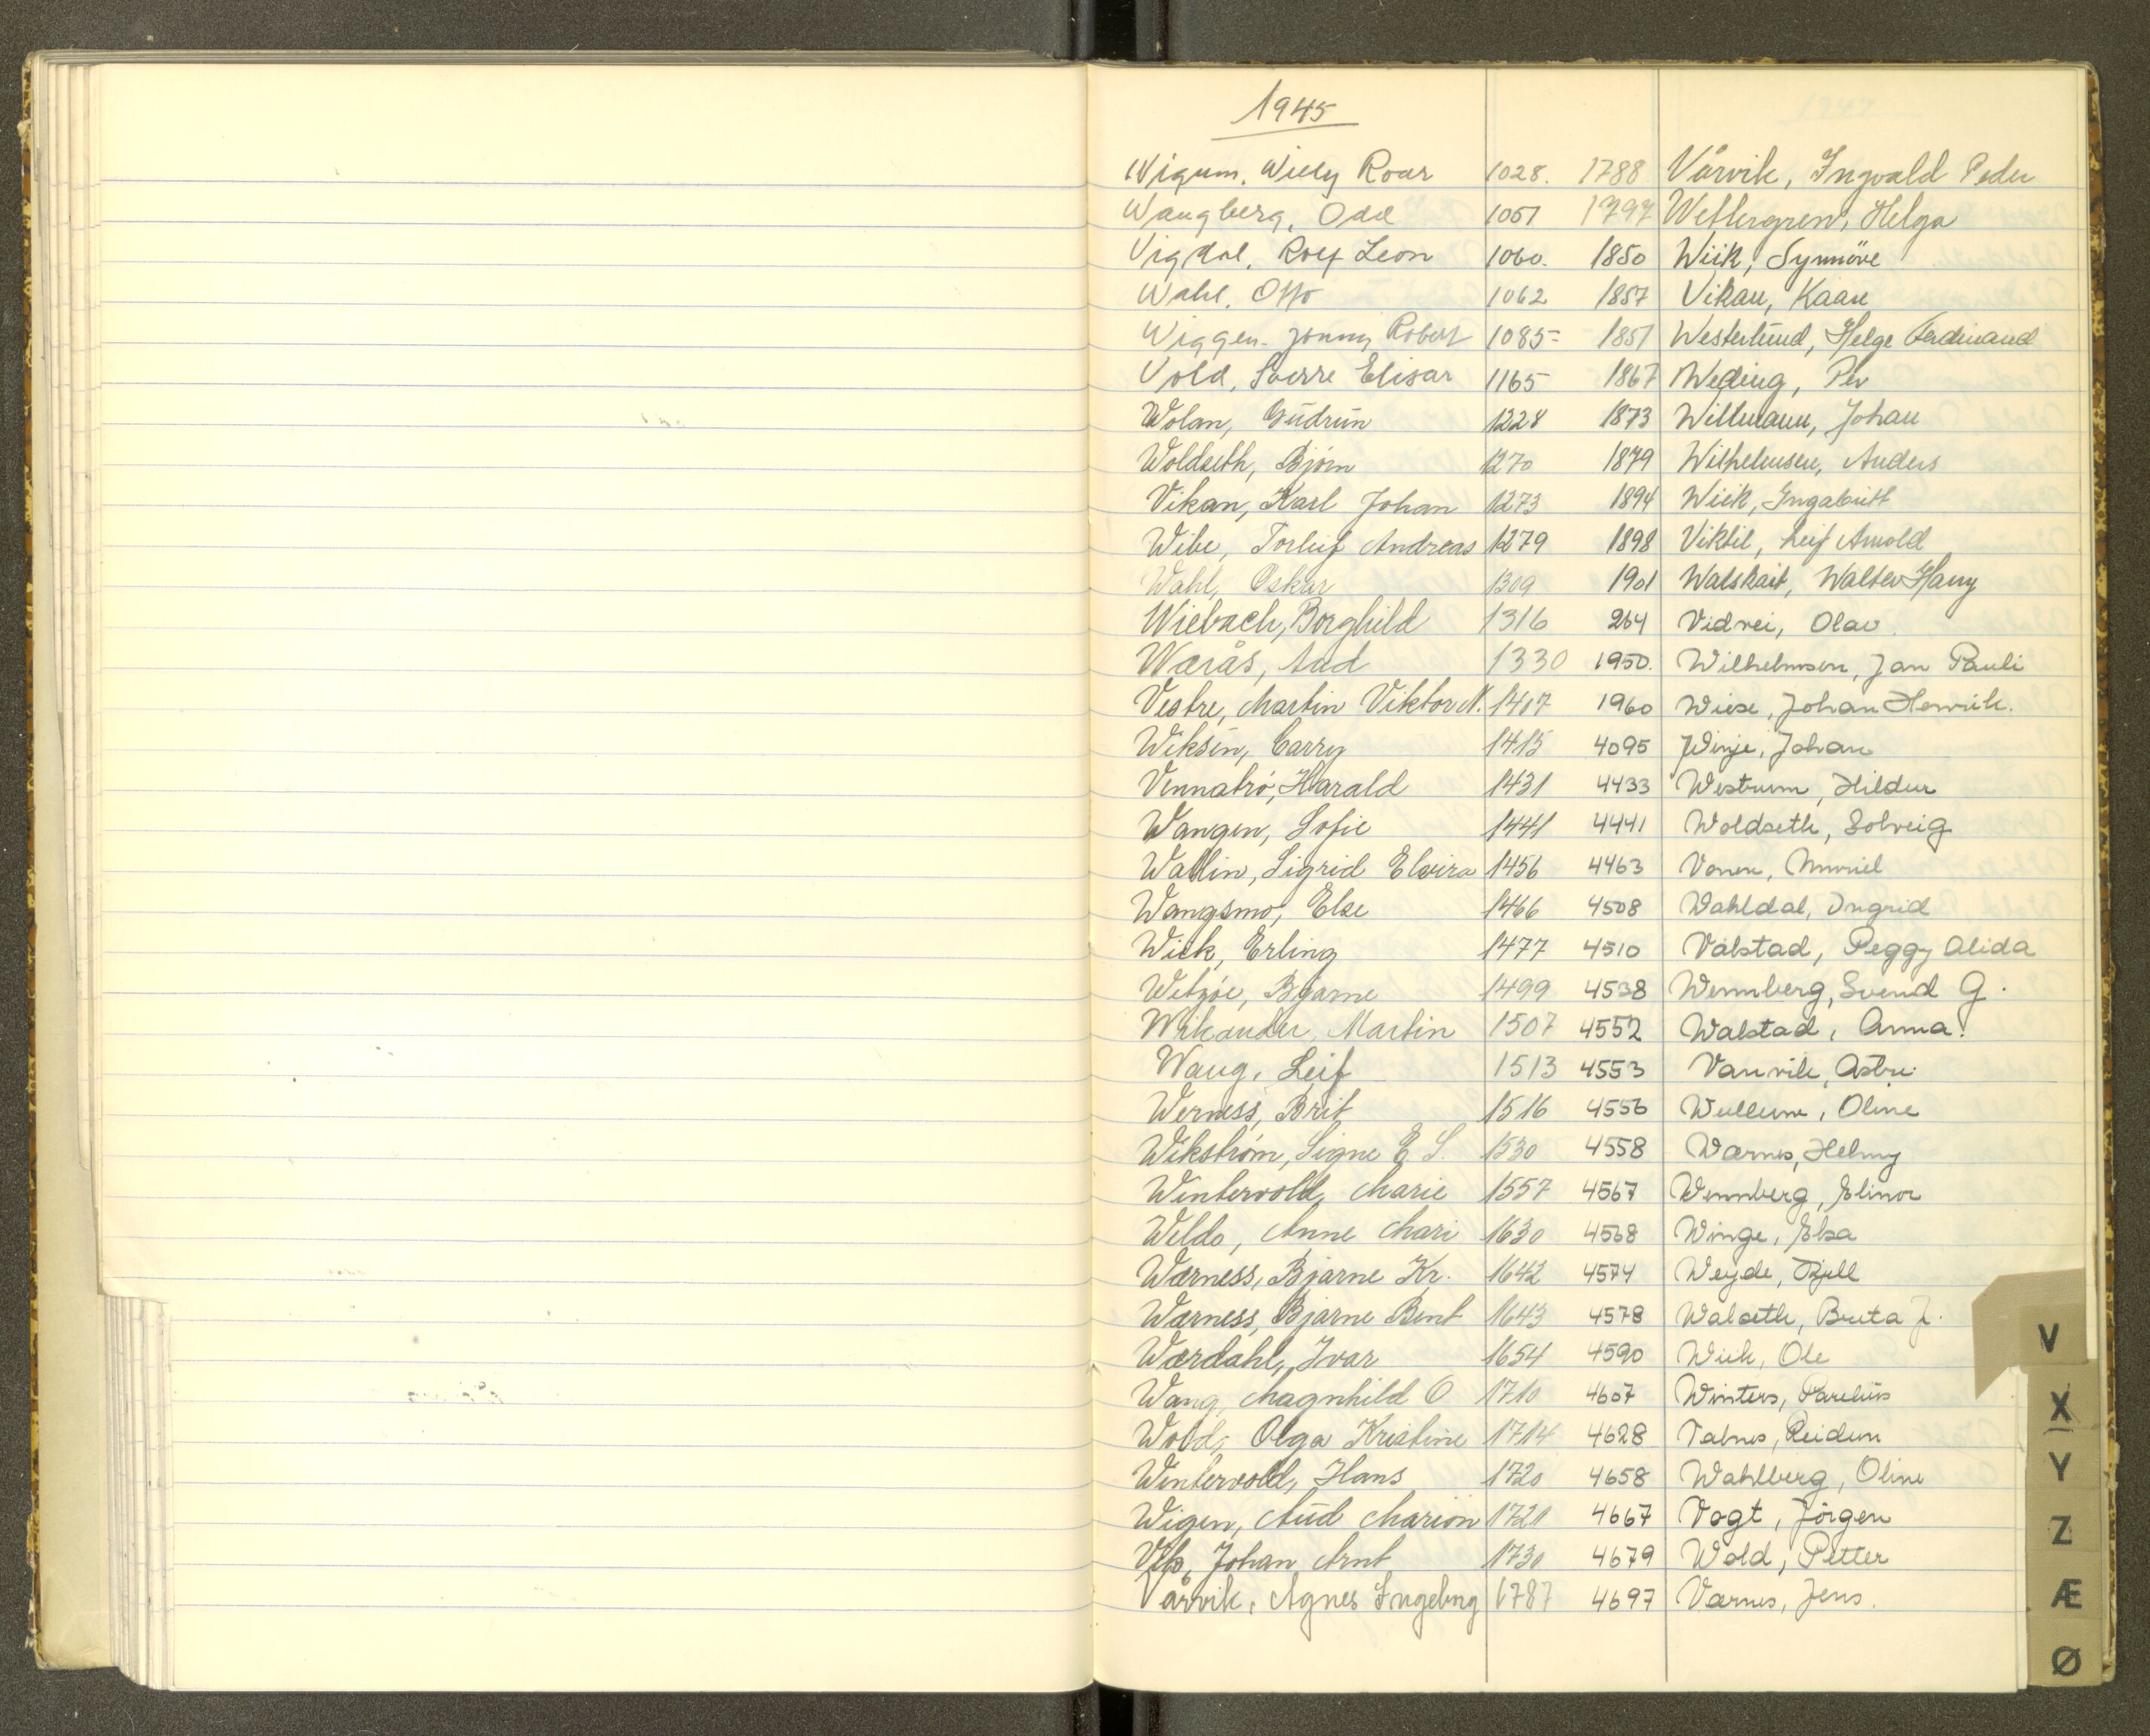 1945
Wigum, Willy Roar 1028. 1788 Vårvik, Ingvald Peder
Waugberg, Odd 1051 1797 Wettergren, Helga
Vigdal, Rolf Leon 1060. 1850 Wiik, Synnöve
Wahl, Otto 1062 1857 Vikan, Kaare
Wiggen, Jonny Robert 1085 1851 Westerlund, Helge Ferdinand
Vold, Sverre Elisar 1165 1867 Weding, Per
Wolan, Gudrun 1228 1873 Willmann, Johan
Woldseth, Bjørn 1270 1879 Wilhelmsen, Anders
Vikan, Karl Johan 1273 1894 Wiik, Ingabritt
Wibe, Torleif Andreas 1279 1898 Viktil, Leif Arnold
Wahl, Oskar 1309 1901 Walskait, Walter Harry
Wiebach, Borghild 1316 264 Vidvei, Olav
Wærås, Aud 1330 1950. Wilhelmsen, Jan Pauli
Vestre, Martin Viktor N. 1407 1960 Wiese, Johan Henrik.
Wiksén, Carry 1415 4095 Winje, Johan
Vennatrø, Harald 1431 4433 Westrum, Hildur
Wangen, Sofie 1441 4441 Woldseth, Solveig
Wallin, Sigrid Elvira 1456 4463 Vonen, Muriel
Wangsmo, Else 1466 4508 Wahldal, Ingrid
Wick, Erling 1477 4510 Valstad, Peggy Alida
Wetzøe, Bjarne 1499 4538 Wennberg, Svend G.
Wikander, Martin 1507 4552 Walstad, Anna.
Waug, Leif 1513 4553 Vanvik, Astri
Werness, Brit 1516 4556 Wullum, Oline
Wikstrøm, Signe E. S. 1530 4558 Wærnes, Helmy
Wintervold, Marie 1557 4567 Wennberg, Elinor
Weldo, Anne Mari 1630 4568 Winge, Elsa
Wærness, Bjarne Kr. 1642 4574 Weyde, Kjell
Wærness, Bjarne Bent 1643 4578 Walseth, Breta J.
Wærdahl, Ivar 1654 4590 Wiik, Ole
Wang, Magnhild O 1710 4607 Winters, Parelius
Wold, Olga Kristine 1714 4628 Valnes, Reidun
Wintervold, Hans 1720 4658 Wahlberg, Oline
Wigen, Aud Marion 1721 4667 Vogt, Jörgen
Johan Arnt 1730 4679 Wold, Petter
Vårvik, Agnes Ingeborg 1787 4697 Værnes, Jens.
V
X
Y
Z
Æ
Ø